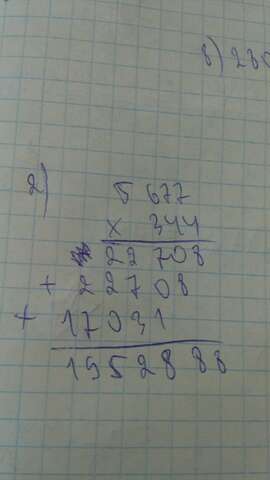 8) 280
2)
5 677
x 344
22708
+ 22708
+ 17031
1952888